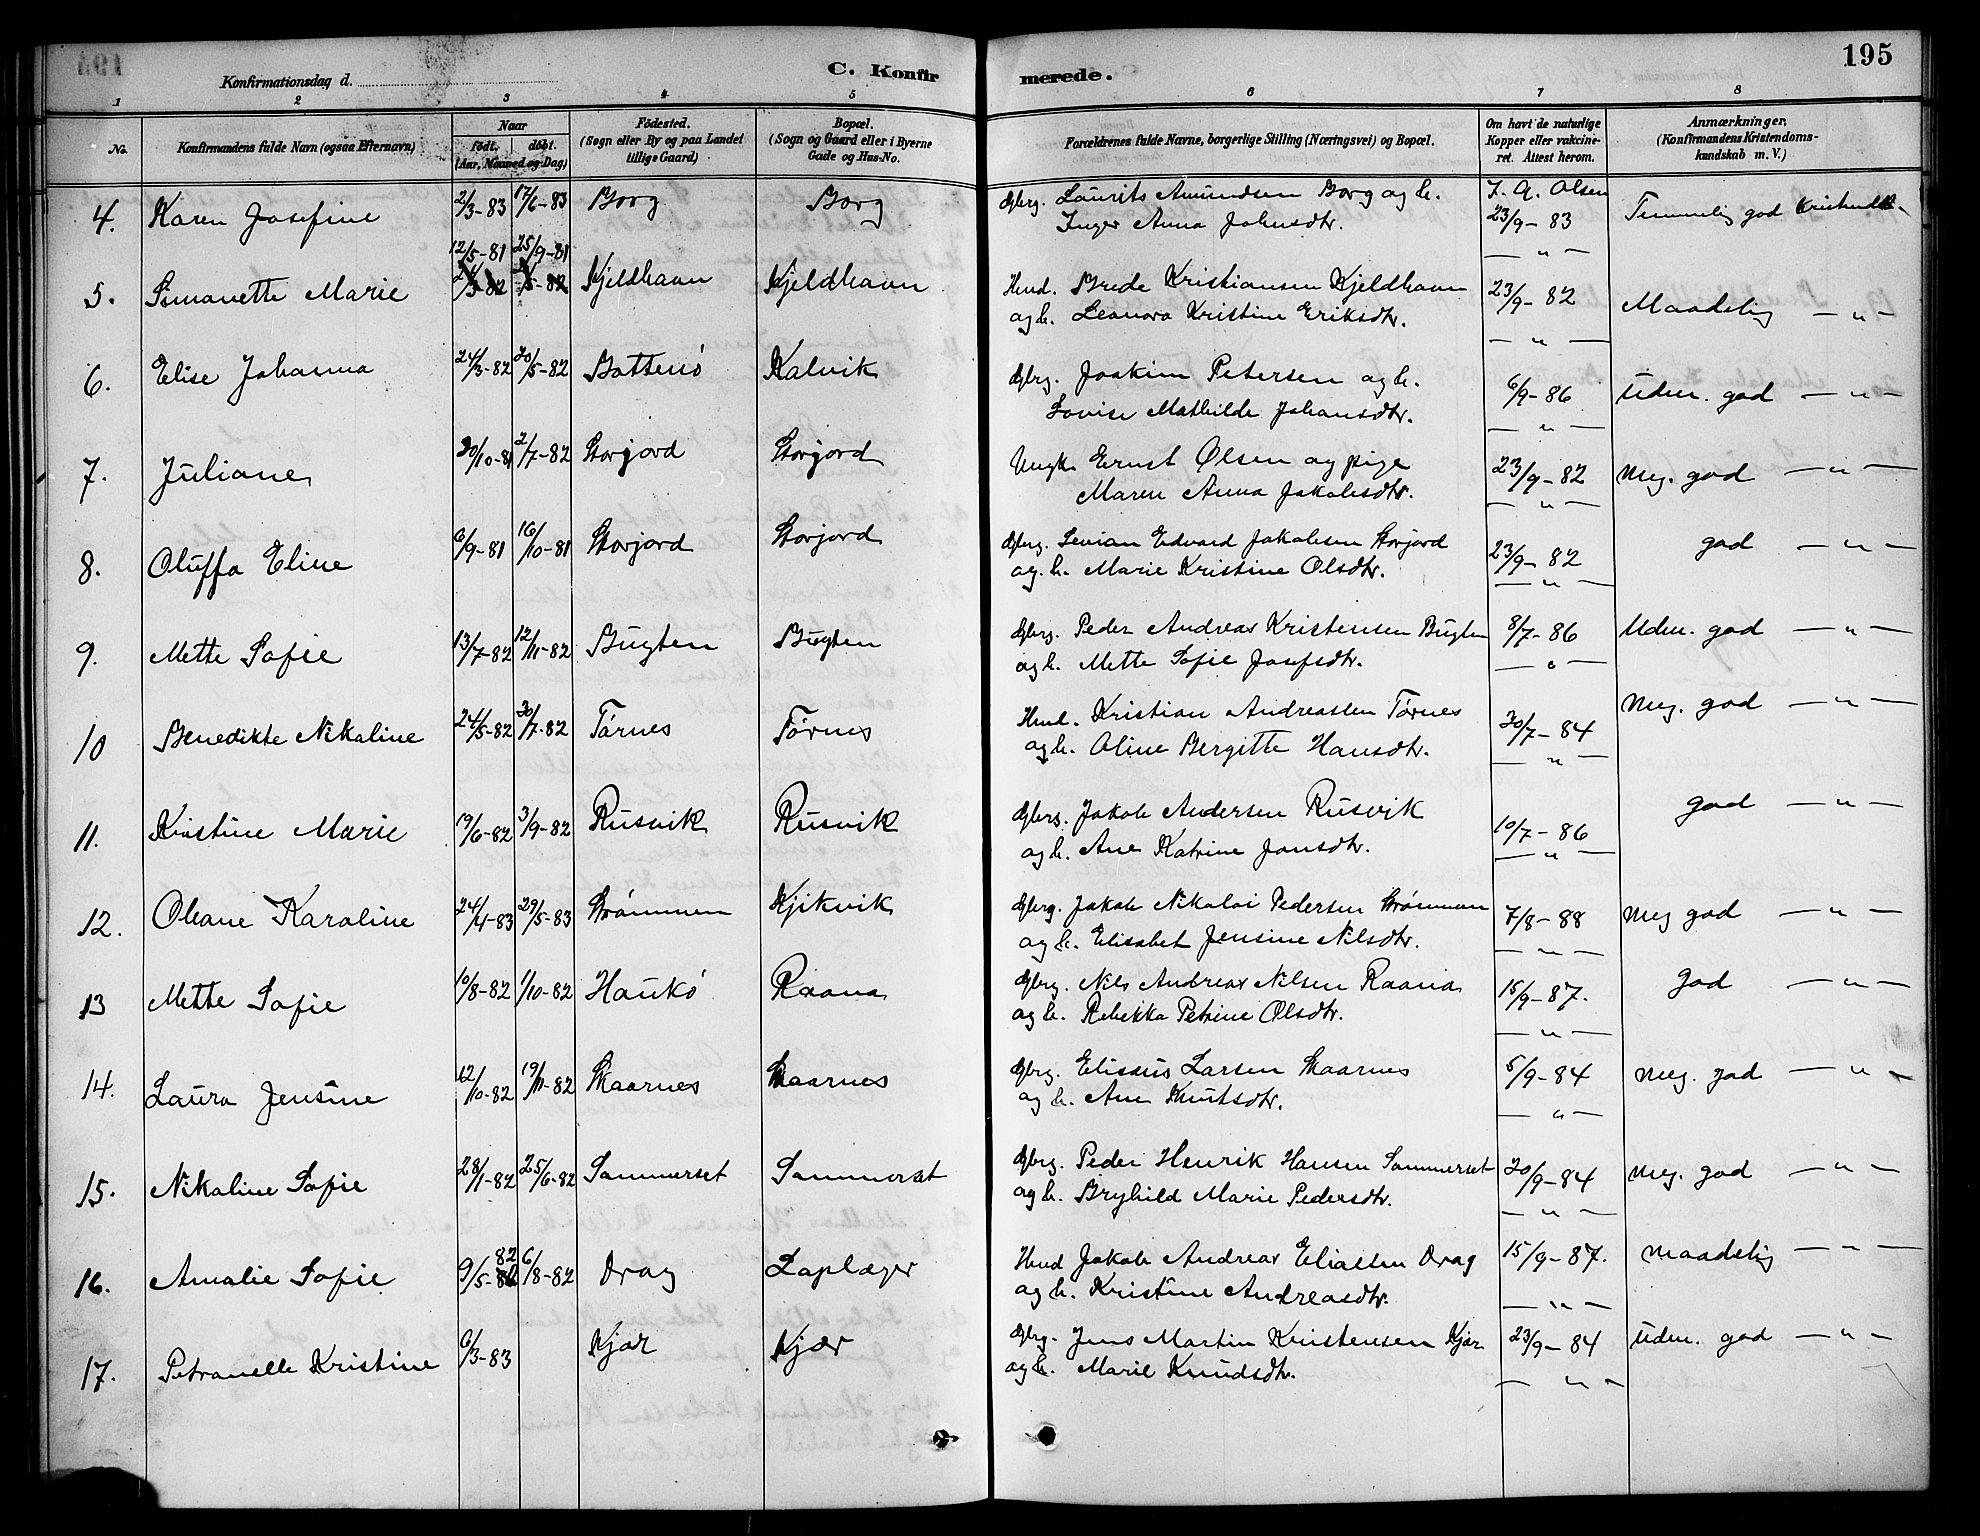 195
Konfirmationsdag d.
C. Konfir
merede.
1 2 3 4 5 6 7 8
No.
Konfirmandens fulde Navn (ogsaa Efternavn)
Naar
født. døbt.
(Aar, Maaned og Dag)
Födested.
(Sogn eller By og paa Landet
tillige Gaard)
Bopæl.
(Sogn og Gaard eller i Byerne
Gade og Hus-No.
Forældrenes fulde Navne, borgerlige Stilling (Næringsvei) og Bopæl.
Om havt de naturlige
Kopper eller vakcine-
ret. Attest herom.
Anmærkninger.
(Konfirmandens Kristendoms-
kundskab m. V.)
4. Karen Josefine 2/3-83 17/6-83 Borg Borg Gbrg. Laurits Amundsen Borg og h. J. A. Olsen
Inger Anna Johnsdtr. 23/9-83 Temmelig god
12/5-81 25/9-81 — " —
5. Simanette Marie Kjeldhavn Kjeldhavn Hmd. Brede Kristiansen Kjeldhavn 23/9-82 Maadelig — " —
og h. Leonora Kristine Eriksdtr. — " —
6. Elise Johanna 24/3-82 20/5-82 Bottenø Kalvik Gbrg. Joakim Petersen og h. 6/9-86 Udm. god — " —
Lovise Mathilde Johansdtr. — " —
7. Juliane 30/10-81 2/7-82 Storjord Storjord Ungk. Ernst Olsen og pige 23/9-82 Meg. god — " —
Maren Anna Jakobsdtr. — " —
8. Oluffa Eline 6/9-81 16/10-81 Storjord Storjord Gbrg. Sevian Edvard Jakobsen Storjord 23/9-82 god — " —
og h. Marie Kristine Olsdtr. — " —
9. Mette Sofie 13/7-82 12/11-82 Bugten Bugten Gbrg. Peder Andreas Kristensen Bugten 8/7-86 Udm. god — " —
og h. Mette Sofie Josefsdtr. — " —
10 Benedikte Nikaline 24/5-82 30/7-82 Tørnes Tørnes Hmd. Kristian Andreassen Tørnes 30/7-84 Meg. god — " —
og h. Oline Bergitte Hansdtr. — " —
11. Kristine Marie 19/6-82 3/9-82 Rusvik Rusvik Gbrg. Jakob Andersen Rusvik 10/7-86 god — " —
og h. Ane Katrine Jonsdtr. — " —
12. Oleane Karoline 24/4-83 29/5-83 Strømmen Kjikvik Gbrg. Jakob Nikolai Pedersen Strømmen 7/8-88 Meg god — " —
og h. Elisabet Jensine Nilsdtr. — " —
13 Mette Sofie 10/8-82 1/10-82 Haukø Raana Gbrg. Nils Andreas Nilsen Raana 15/9-87. god — " —
og h. Rebekka Petrine Olsdtr. — " —
14. Laura Jensine 12/10-82 19/11-82 Skaarnes Skaarnes Gbrg. Elisæus Larsen Skaarnes 5/9-84 Meg. god — " —
og h. Ane Knutsdtr. — " —
15. Nikaline Sofie 28/1-82 25/6-82 Sommerset Sommerset Gbrg. Peder Henrik Hansen Sommerset 20/9-84 Meg. god — " —
og h. Brynhild Marie Pedersdtr. — " —
16. Amalie Sofie 9/5-82 6/8-82 Drag Laplæger Hmd Jakob Andreas Eliassen Drag 15/9-87. Maadelig — " —
og h. Kristine Andreasdtr. — " —
17. Petranelle Kristine 6/3-83 Kjær Kjær Gbrg. Jens Martin Kristensen Kjær 23/9-84 Udm. god — " —
og h. Marie Knudsdtr. — " —